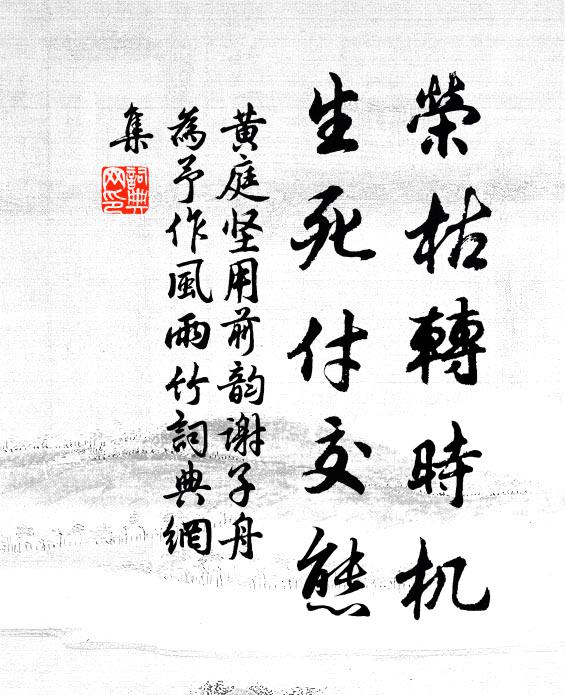 榮枯轉時机
生死付交態
黄庭坚用前韵谢子舟
為予作風雨竹詞典網
集
詞典網印